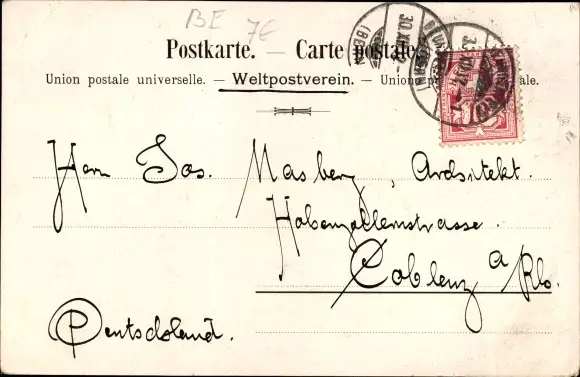 BE 7E
Postkarte. — Carte postale.
Union postale universelle. — Weltpostverein. — Unione po ale.
30.XII.02
Herrn Jos. Masberg, Architekt.
Hohenzollernstrasse.
Coblenz a/Rh.
Deutschland.